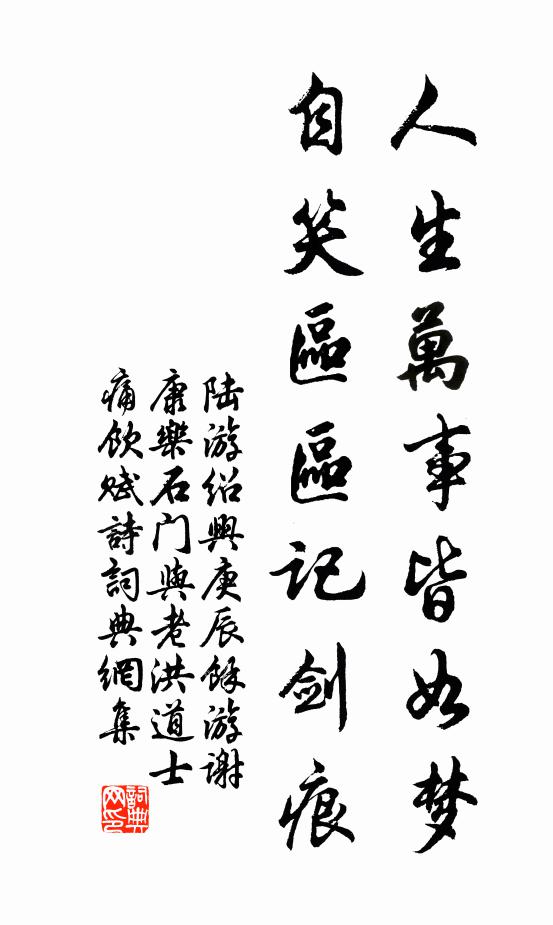 人生萬事皆如梦
自笑區區記剑痕
陆游绍興庚辰餘游谢
康樂石门與老洪道士
痛飲赋詩詞典網集
詞典
网印